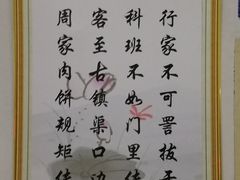 行家不可詈拔手
科班不如门里传
客至古镇渠口边
周家肉饼规矩传